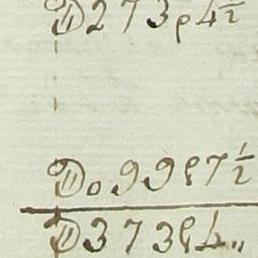 D273p4½
D099p7½
D373p4„